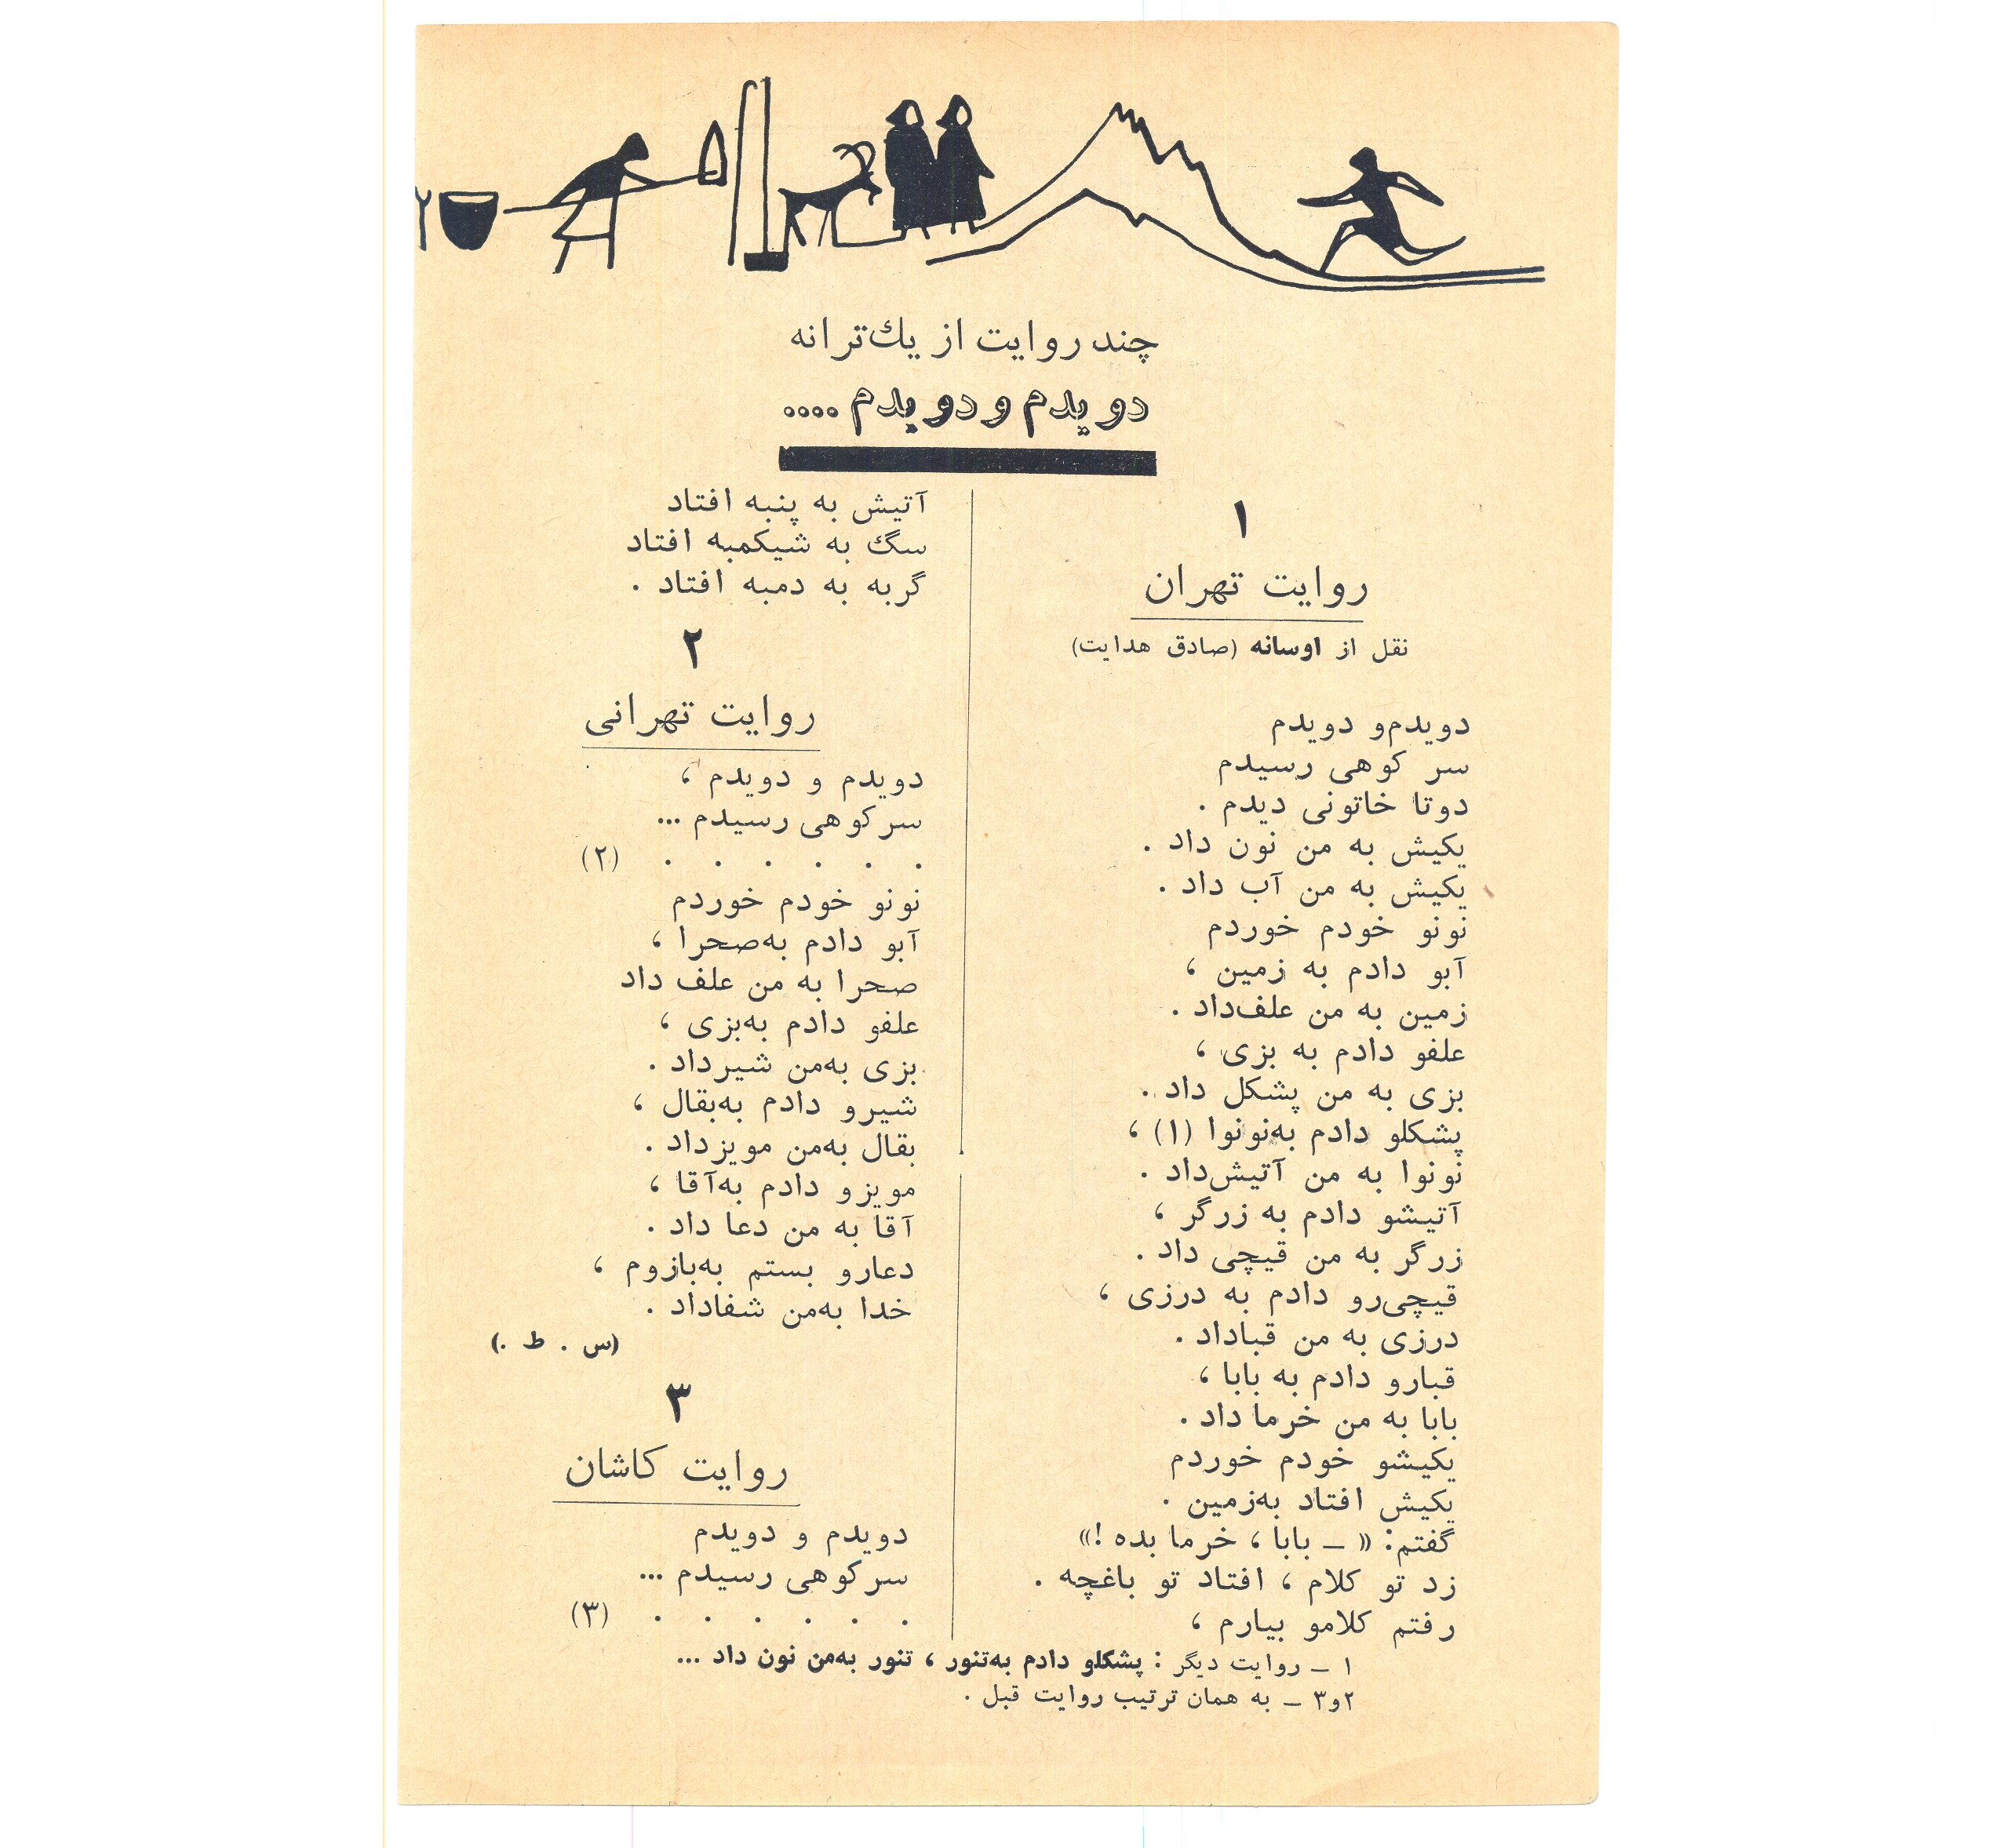 چند روایت از یك ترانه
دویدم و دویدم ....
۱
روایت تهران
نقل از اوسانه (صادق هدایت)
دویدم‌و دویدم
سر کوهی رسیدم
دوتا خاتونی دیدم .
یکیش به من نون داد .
یکیش به من آب داد .
نونو خودم خوردم
آبو دادم به زمین ،
زمین به من علف‌داد .
علفو دادم به بزی ،
بزی به من پشکل داد .
پشکلو دادم به‌نونوا (۱) ،
نونوا به من آتیش‌داد .
آتیشو دادم به زرگر ،
زرگر به من قیچی داد .
قیچی‌رو دادم به درزی ،
درزی به من قباداد .
قبارو دادم به بابا ،
بابا به من خرما داد .
یکیشو خودم خوردم
یکیش افتاد به‌زمین .
گفتم: « – بابا ، خرما بده !»
زد تو کلام ، افتاد تو باغچه .
رفتم کلامو بیارم ،
آتیش به پنبه افتاد
سگ به شیکمبه افتاد
گربه به دمبه افتاد .
۲
روایت تهرانی
دویدم و دویدم ،
سرکوهی رسیدم ...
. . . . . . (۲)
نونو خودم خوردم
آبو دادم به‌صحرا ،
صحرا به من علف داد
علفو دادم به‌بزی ،
بزی به‌من شیرداد .
شیرو دادم به‌بقال ،
بقال به‌من مویزداد .
مویزو دادم به‌آقا ،
آقا به من دعا داد .
دعارو بستم به‌بازوم ،
خدا به‌من شفاداد .
(س . ط .)
۳
روایت کاشان
دویدم و دویدم
سرکوهی رسیدم ...
. . . . . . (۳)
۱ – روایت دیگر : پشکلو دادم به‌تنور ، تنور به‌من نون داد ...
۲و۳ – به همان ترتیب روایت قبل .